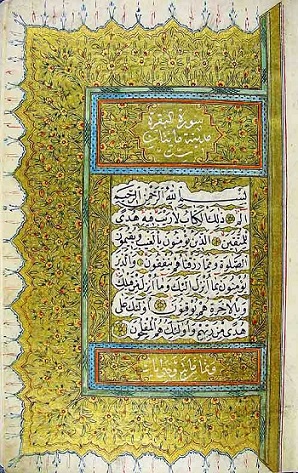 سورة البقرة
مدنية مائتان
بِسْمِ اللهِ الرَّحْمٰنِ الرَّحِيمِ
الٓمٓ ذٰلِكَ الْكِتَابُ لَا رَيْبَ فِيهِ هُدًى
لِلْمُتَّقِينَ الَّذِينَ يُؤْمِنُونَ بِالْغَيْبِ وَيُقِيمُونَ
الصَّلٰوةَ وَمِمَّا رَزَقْنَاهُمْ يُنْفِقُونَ وَالَّذِينَ
يُؤْمِنُونَ بِمَا اُنْزِلَ اِلَيْكَ وَمَا اُنْزِلَ مِنْ قَبْلِكَ
وَبِالْاٰخِرَةِ هُمْ يُوقِنُونَ اُولٰئِكَ عَلٰى
هُدًى مِنْ رَبِّهِمْ وَاُولٰئِكَ هُمُ الْمُفْلِحُونَ